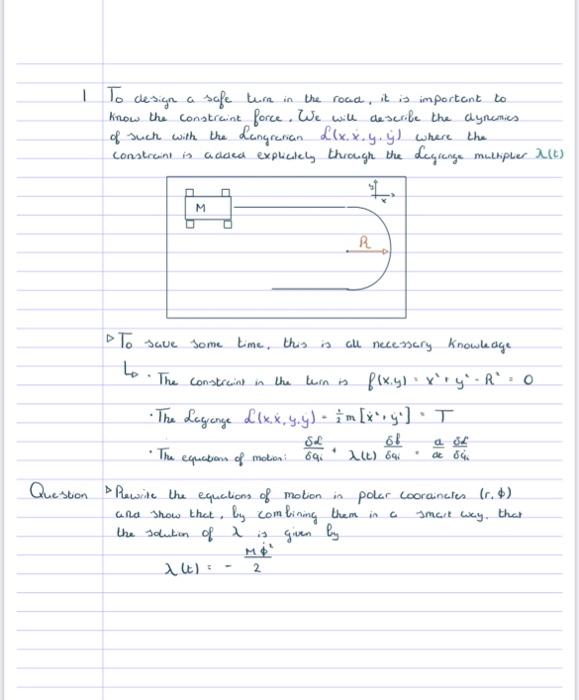 1 To design a safe turn in the road, it is important to
know the constraint force. We will describe the dynamics
of such with the Langrenian L(x, ẋ, y, ẏ) where the
constraint is added explicitely through the Lagrange multiplier λ(t)
y
x
M
R
▷ To save some time, this is all necessary knowledge
↳ · The constraint in the turn is f(x,y) = x² + y² - R² = 0
· The Lagrange L(x, ẋ, y, ẏ) = ½m[ẋ² + ẏ²] = T
· The equations of motion: δL/δqi + λ(t) δf/δqi = d/dt δL/δq̇i
Question ▷ Rewrite the equations of motion in polar coordinates (r, ϕ)
and show that, by combining them in a smart way, that
the solution of λ is given by
λ(t) = - Mϕ̇²/2